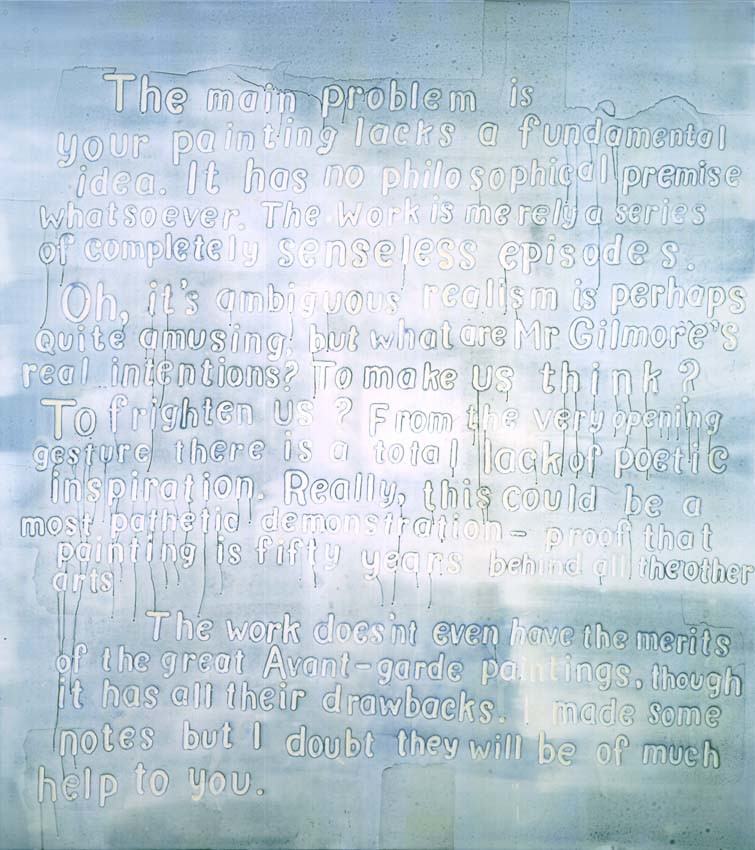 The main problem is
your painting lacks a fundamental
idea. It has no philosophical premise
whatsoever. The Work is merely a series
of completely senseless episodes.
Oh, it's ambiguous realism is perhaps
Quite amusing, but what are Mr Gilmore's
real intentions? To make us think?
To frighten us? From the very opening
gesture there is a total lack of poetic
inspiration. Really, this could be a
most pathetic demonstration - proof that
painting is fifty years behind all the other
arts
The work does'nt even have the merits
of the great Avant-garde paintings, though
it has all their drawbacks. I made some
notes but I doubt they will be of much
help to you.